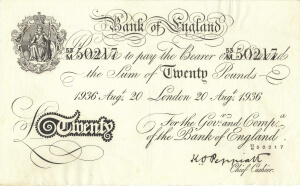 Bank of England
53/M 50217 53/M 50217
to pay the Bearer on
the Sum of Twenty Pounds
1936 Aug.t 20 London 20 Aug.t 1936
For the Gov.r and Comp.a
of the Bank of England.
Twenty
50217
K.O. Peppiatt
Chief Cashier.